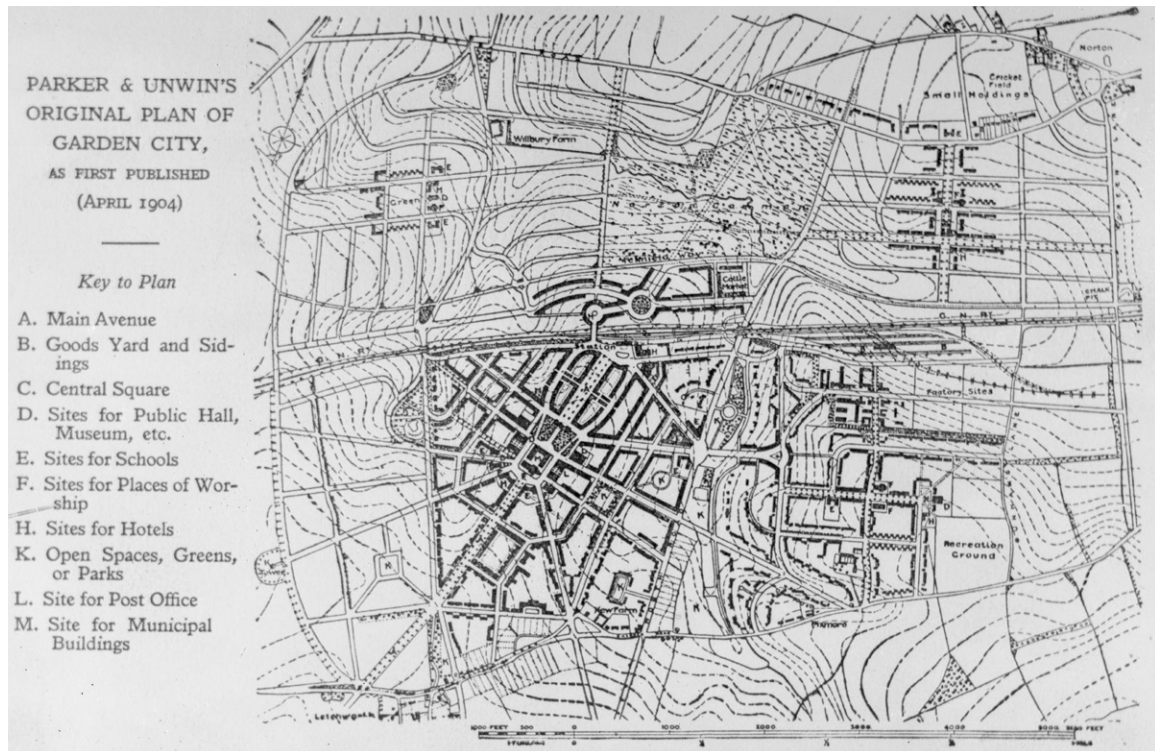 PARKER & UNWIN'S
ORIGINAL PLAN OF
GARDEN CITY,
AS FIRST PUBLISHED
(APRIL 1904)
Key to Plan
A. Main Avenue
B. Goods Yard and Sid-
ings
C. Central Square
D. Sites for Public Hall,
Museum, etc.
E. Sites for Schools
F. Sites for Places of Wor-
ship
H. Sites for Hotels
K. Open Spaces, Greens,
or Parks
L. Site for Post Office
M. Site for Municipal
Buildings
Norton
Cricket
Field
Small Holdings
E
Wilbury Farm
E
Green
M
D
E
H
Cattle
Market
G. N. RY
G. N. RY
Station
H
Factory Sites
K
K
E
D
H
Recreation
Ground
K
K
New Farm
K
Letchworth
1000 FEET 500 0 1000 2000 3000 4000 5000